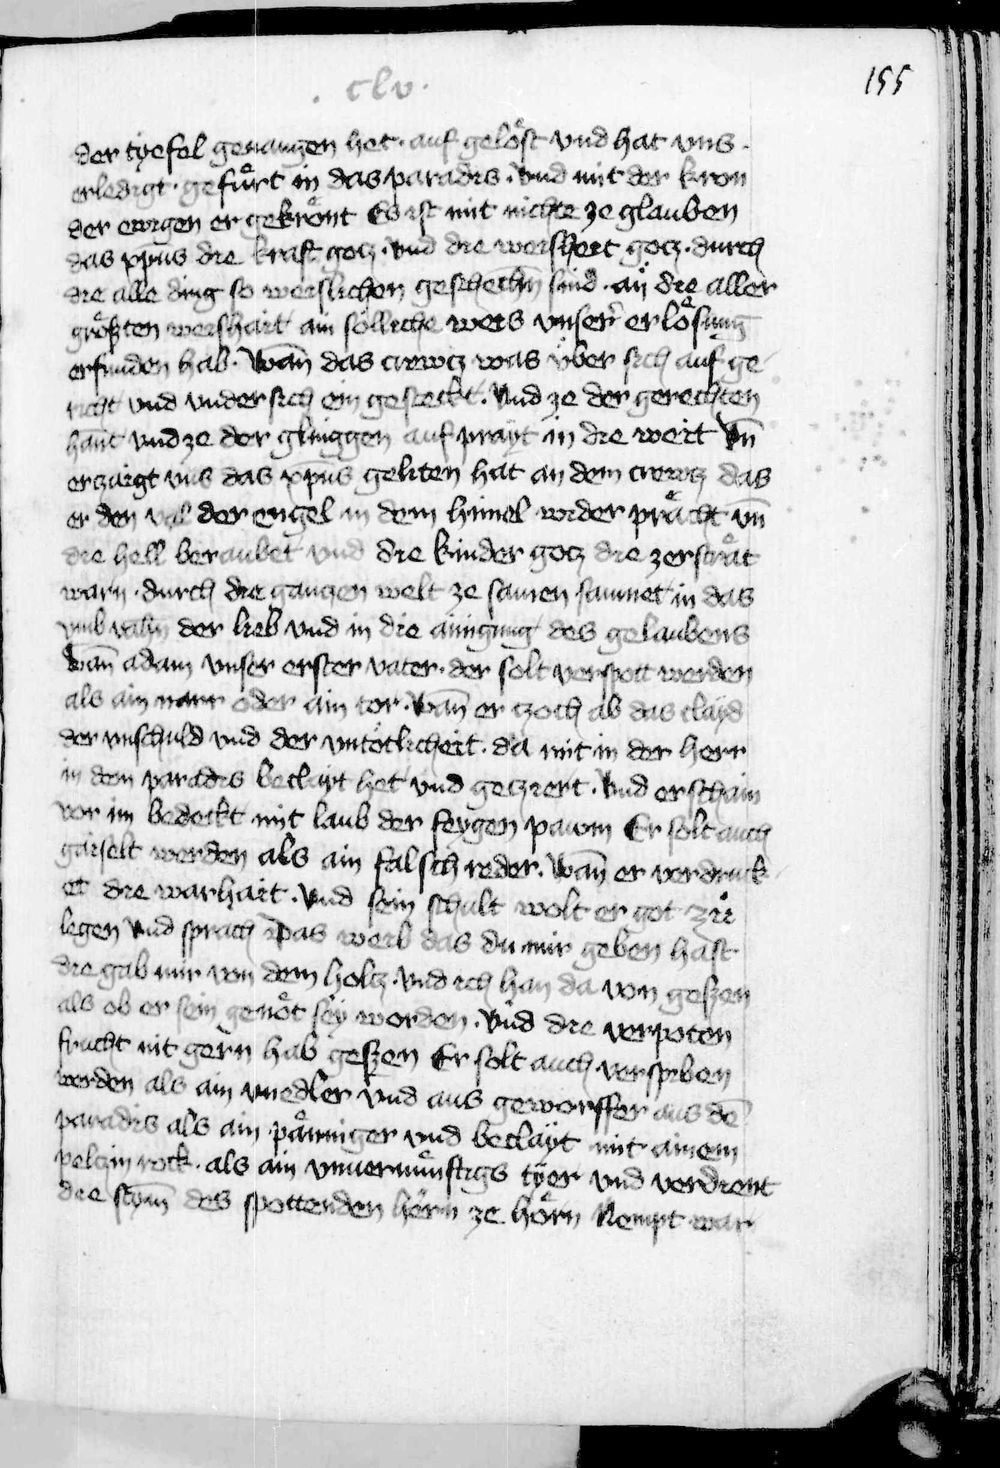 .clv.
155
der tyefel genangen het · auf gelöst vnd hat vns ·
erledigt · gefürt in das paradis · vnd mit der kron
der ewigen er gekrönt Es ist mit nichte ze glauben
das xpus die kraft gotz · vnd die weisheit gotz · durch
die alle ding so weislichen geschechn̄ sind · an die aller
größten weishait ain sölliche weis vnser̄ erlösung
erfunden hab · Wan̄ das crewtz was über sich auf ge
richt vnd vnder sich ein gesteckt · Vnd ze der gerechten
hant vnd ze der glinggen auf prayt in die weit Vn̄
erzaigt vns das xpus geliten hat an dem crewtz das
er den val der engel in dem himel wider prächt vn̄
die hell beraubet vnd die kinder gotz die zersträt
warn · durch die ganzen welt ze samen samnet in das
vmb valn̄ der lieb vnd in die ainigung des gelaubens
Wan̄ adam vnser erster vater · der solt verspott werden
als ain narr oder ain tor · Wan̄ er czoch ab das clayd
der vnschuld vnd der vntötlicheit · da mit in der herr
in dem paradis beclayt het vnd gecziert · Vnd erschain
vor im bedeckt mit laub der feygen pawm Er solt auch
gaiselt werden als ain falsch reder · Wan̄ er verdruck
et die warhait · Vnd sein schult wolt er got zü
legen Vnd sprach Das weib das du mir geben hast
die gab mir von dem holtz · vnd ich han da von geßen
als ob er sein genöt sey worden · Vnd die verpoten
frucht nit gern hab geßen Er solt auch verspiben
werden als ain vnedler vnd aus geworffer aus de͞
paradis als ain pänniger vnd beclayt mit ainem
pelczin rock · als ain vnuernünftigs tyer vnd verdient
die stym̄ des spottenden hern ze hörn Nempt war